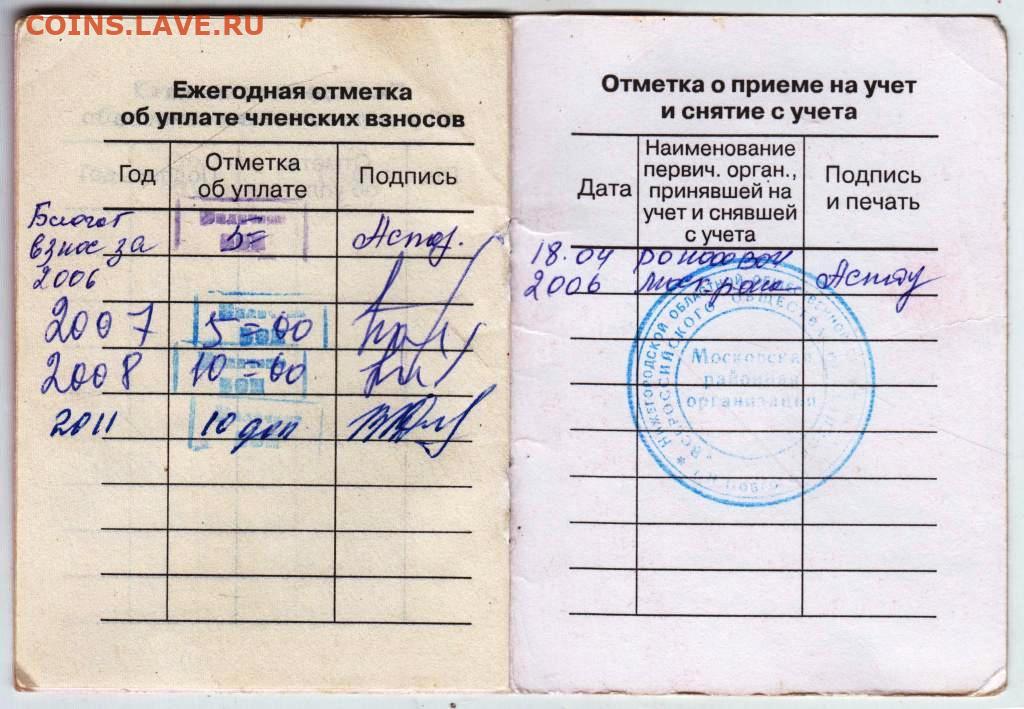 COINS.LAVE.RU
Ежегодная отметка
об уплате членских взносов
Год
Отметка
об уплате
Подпись
взнос за
5=
2006
2007 5=00
2008 10=00
2011 10
Отметка о приеме на учет
и снятие с учета
Дата
Наименование
первич. орган.,
принявшей на
учет и снявшей
с учета
Подпись
и печать
18.04
2006
НИЖЕГОРОДСКОЙ ОБЛАСТНОЙ
ВСЕРОССИЙСКОГО ОБЩЕСТВА
Московская
районная
организация